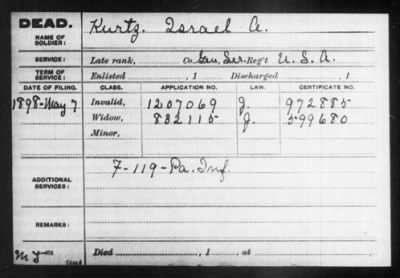 DEAD. Kurtz, Israel A.
NAME OF SOLDIER:
SERVICE: Late rank, Co. Gen. Ser. Reg't U. S. A.
TERM OF SERVICE: Enlisted , 1 Discharged , 1
DATE OF FILING. CLASS. APPLICATION NO. LAW. CERTIFICATE NO.
1898-May 7 Invalid, 1207069 J. 972885
Widow, 832115 J. 599680
Minor,
ADDITIONAL SERVICES: F-119-Pa. Inf.
REMARKS:
Died , 1 , at